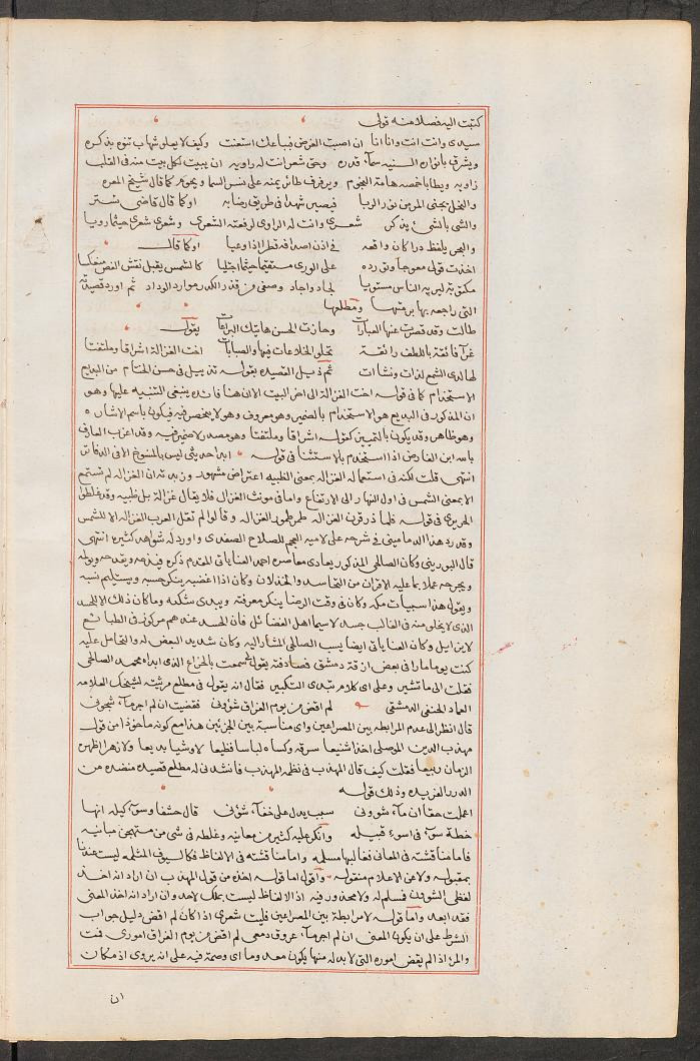 كتبت اليه فصلا منه قولي
سيدي وانت انت وانا انا ان اصبت الغرض فباعك استعنت وكيف لا يعلو شهاب تنوه بذكره
ويشرق بانواره السنيه سماء قدره وحق شعر انت له راويه ان يبيت لكل بيت منه في القلب
زاويه ويطا باخمصه هامة النجوم ويرفرف طائر يمنه على نسر السما ويحوم كما قال شيخ المعره
والنحل يجني المر من نور الربا فيصير شهدا في طريق رضابه او كما قال قاضي تستر
والشي بالشي يذكر شعري وانت له الراوي لرفعته الشعرى وشعري شعري حيثما رويا
والبحر يلفظ درا كان واقعه في اذن اصدافه قطرا اذا وعيا او كما قال
اخذت قولي معوجا وتورده على الورى مستقيما حيثما اجتليا كالشمس يقبل نقش الفص منعكسا
مكتوبه ليريه الناس مستويا لجاد واجاد وصفى من قذر الكدر موارد الوداد ثم اورد قصيدته
التي راجعه بها برمتها ومطلعها
طالت وقد قصرت عنها العبارات وحازت الحسن هاتيك البراعات يقول
غراء فائقة باللطف رائقة تحلو الخلاعات فيها والصبابات اخت الغزالة اشراقا وملتفتا
لها لدى السمع لذات ونشات ثم ذيل القصيده بقوله تذييل في حسن الختام من البديع
الاستخدام كما في قوله اخت الغزالة الى اخر البيت الا ان هنا فائده ينبغي التنبيه عليها وهو
ان المذكور في البديع هو الاستخدام بالضمير وهو معروف وهو لا ينحصر فيه فيكون باسم الاشاره
وهو ظاهر وقد يكون بالتمييز كقوله اشراقا وملتفتا وهو مصدر لا ضمير فيه وقد اغرب العارف
بالله ابن الفارض اذا استخدم بالاستثنا في قوله ابدا حديثي ليس بالمنسوخ الا في الدفاتر
انتهى قلت لكنه في استعماله الغزاله بمعنى الظبيه اعتراض مشهور وزبدته ان الغزاله لم تسمع
الا بمعنى الشمس في اول النهار الى الارتفاع واما في مونث الغزال فلا يقال غزالة بل ظبيه وقد غلطوا
الحريري في قوله فلما ذر قرن الغزاله طمر طمور الغزاله وقالوا لم تقل العرب الغزاله الا للشمس
وقد رد هذا الدماميني في شرحه على لاميه العجم للصلاح الصفدي واورد له شواهد كثيره انتهى
قال البوريني وكان الصالحي المذكور يعادي معاصره احمد العناياتي المقدم ذكره فيذمه ويقدحه ويوله
ويجرحه عملا بما عليه الاقران من التحاسد والخذلان وكان اذا اغضبه ينكر حسبه ويستليم نسبه
ويقول هذا سبيات مكه وكان في وقت الرضا ينكر معرفته ويبدي شكمه وما كان ذلك الا لحسد
الذي لا يخلى منه في الغالب جسد لا سيما اهل الفضائل فان الحسد عندهم مركوز في الطبائع
لا يزايل وكان العناياتي ايضا يسب الصالحي المشار اليه وكان شديد البغض له والتحامل عليه
كنت يوما مارا في بعض ازقة دمشق فصادفته يقول اسمعت بالخزاع الذي ابداه محمد الصالحي
فقلت الى ما تشير وعلى اي كلام تبدي التكبير فقال انه يقول في مطلع مرثيته لشيخك العلامه
العماد الحنفي الدمشقي لم اقض من يوم الفراق شؤوني فقضيت ان لم اجر ماء شجوني
قال انظر الى عدم الرابطه بين المصراعين واي مناسبة بين الجزئين هذا مع كونه ماخوذا من قول
مهذب الدين الموصلي اخذا شنيعا سرقه وكساه لباسا فظيعا لا وشيا بديعا ولا زهرا اظهره
الزمان ربيعا فقلت كيف قال المهذب في نظمه المهذب فانشدني له مطلع قصيده منضده من
الدرر الفريده وذلك قوله
اعلمت حقا ان ماء شووني سبب يدل على خفاء شؤني قال حشفا وسوء كيله انها
خطة سوء في اسوء قبيله وانكر عليه كثير من معانيه وغلطه في شي من منتهجي مبانيه
فاما مناقشته في المعاني فغالبها مسلمه واما مناقشته في الالفاظ فكالسيوف المثلمه ليست عندنا
بمقبوله ولا عن الاعلام منقوله واقول اما قوله اخذه من قول المهذب ان اراد انه اخذ
لفظي الشوون فسلم له ولا محذور فيه اذ الالفاظ ليست بملك لاحد وان اراد انه اخذ المعنى
فقد ابعد واما قوله لا مرابطة بين المصراعين فليت شعري اذا كان لم اقض دليل جواب
الشرط على ان يكون المعنى ان لم اجر ماء عروق دمعي لم اقض من يوم الفراق اموري فمت
والمرء اذا لم يقض اموره التي لا بد له منها يكون معدوما اي وصمة فيه على انه يروى اذ مكان
ان